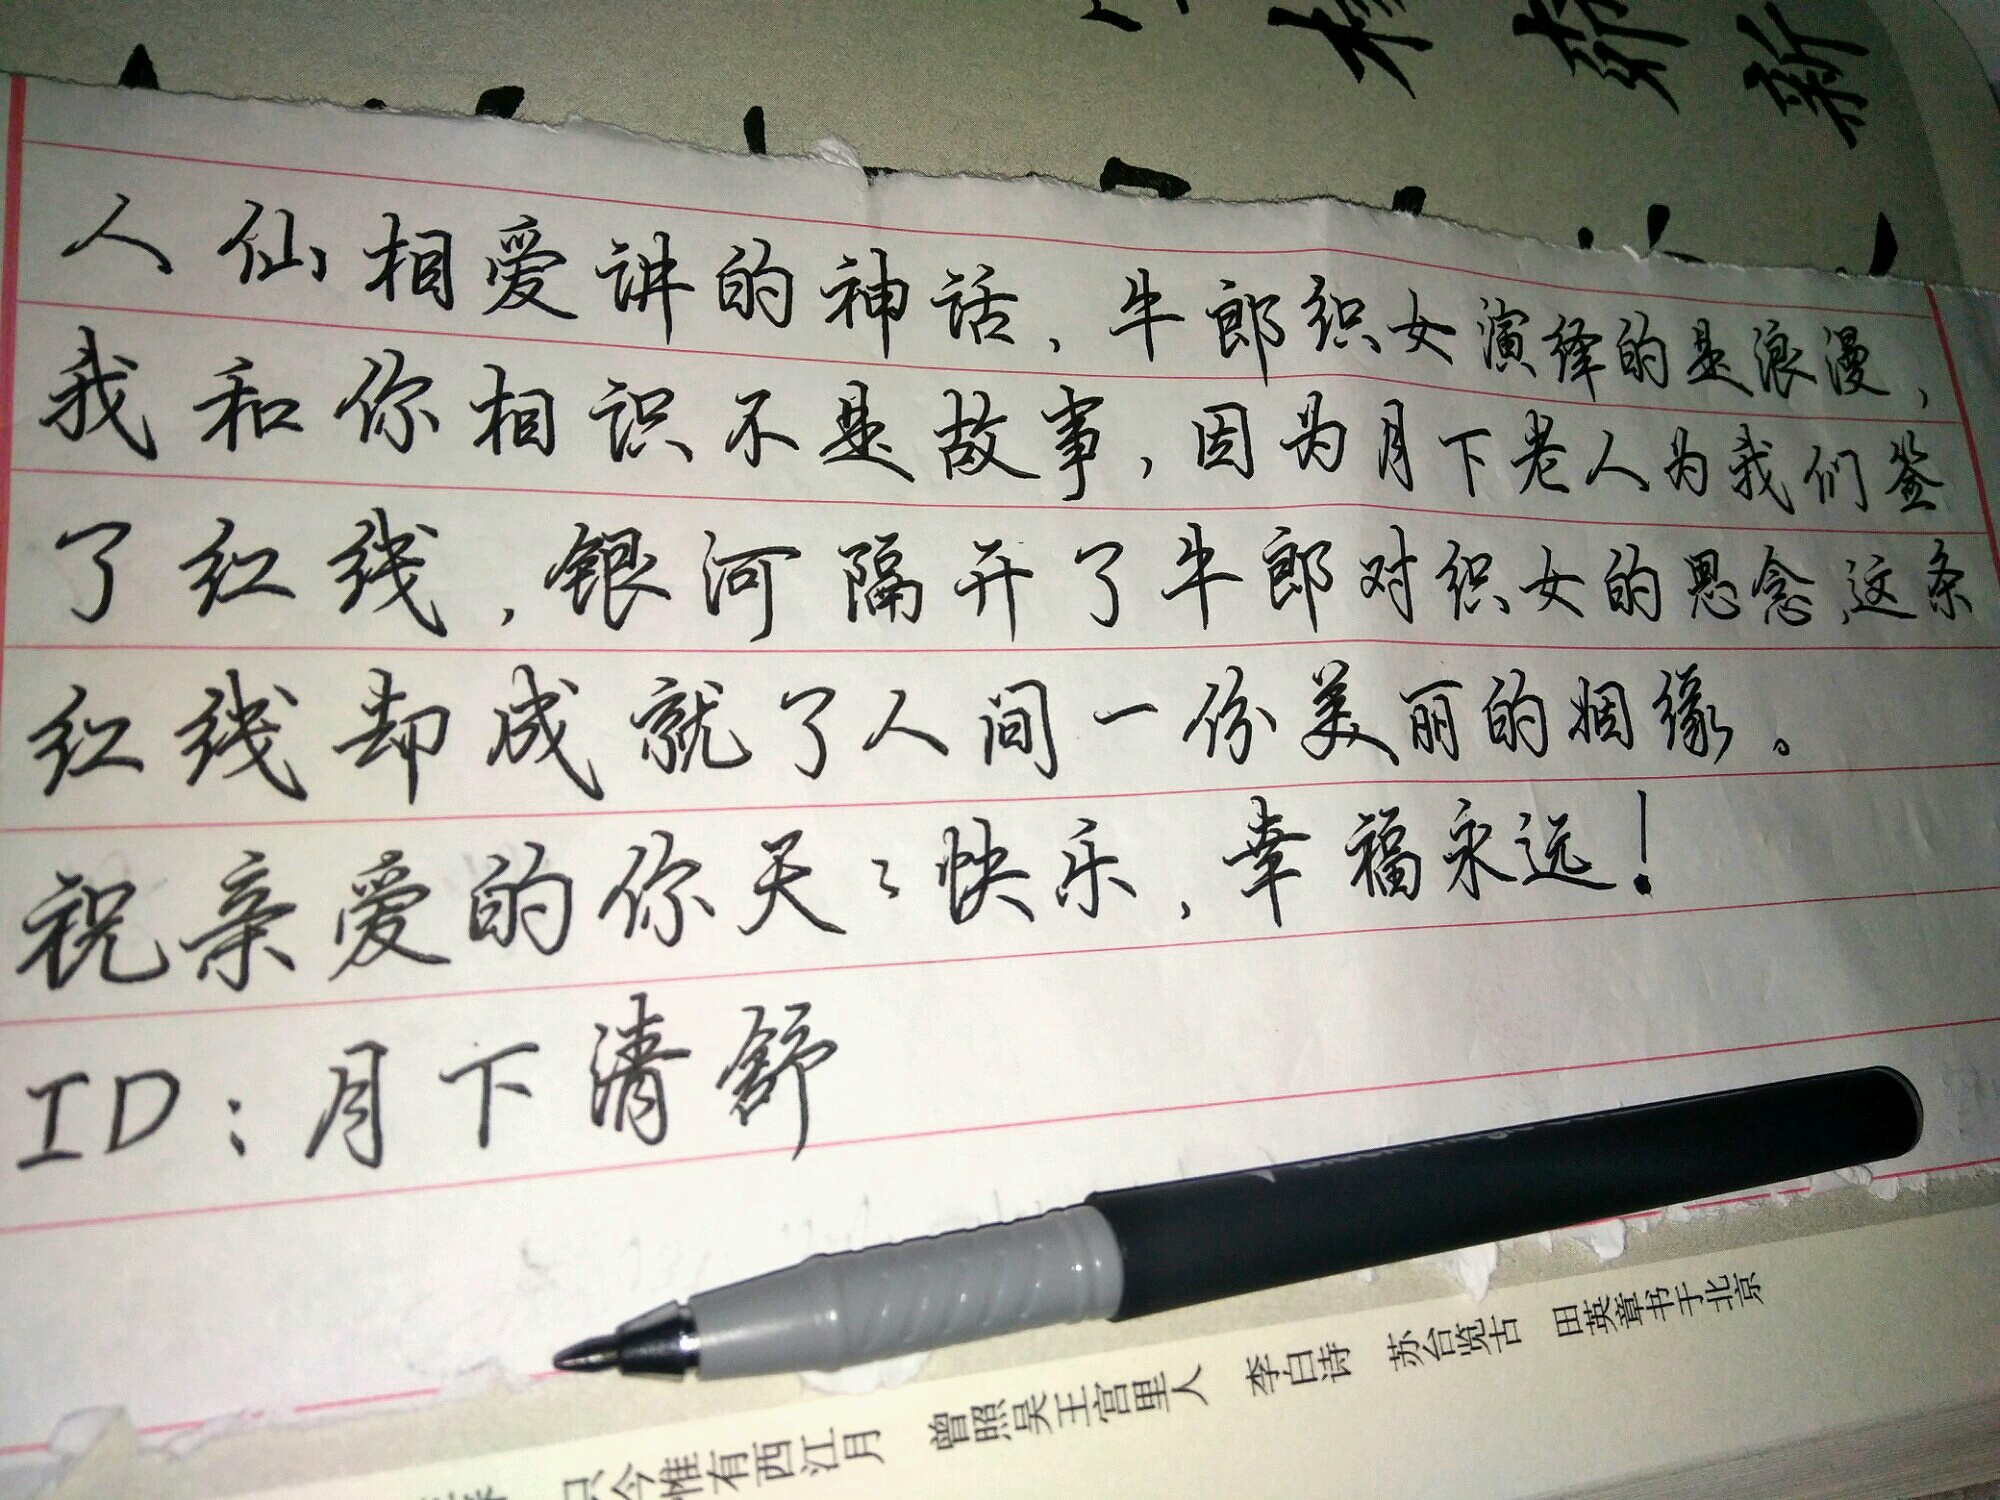 新
人仙相爱讲的神话，牛郎织女演绎的是浪漫，
我和你相识不是故事，因为月下老人为我们签
了红线，银河隔开了牛郎对织女的思念，这条
红线却成就了人间一份美丽的姻缘。
祝亲爱的你天々快乐，幸福永远！
ID：月下清舒
只今惟有西江月 曾照吴王宫里人 李白诗 苏台览古 田英章书于北京